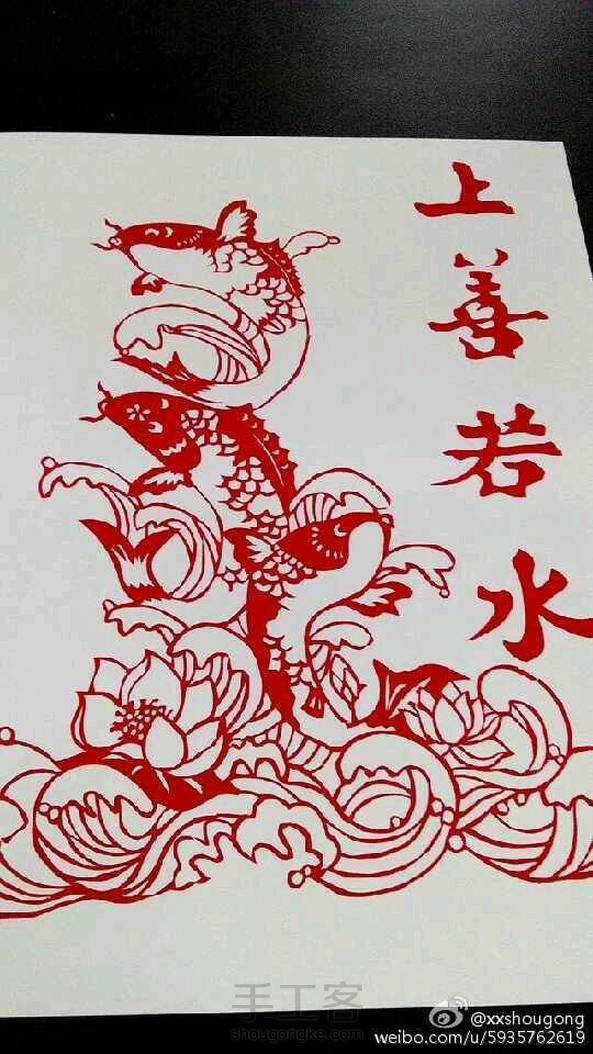 上善若水
手工客
shougongke.com
@xxshougong
weibo.com/u/5935762619